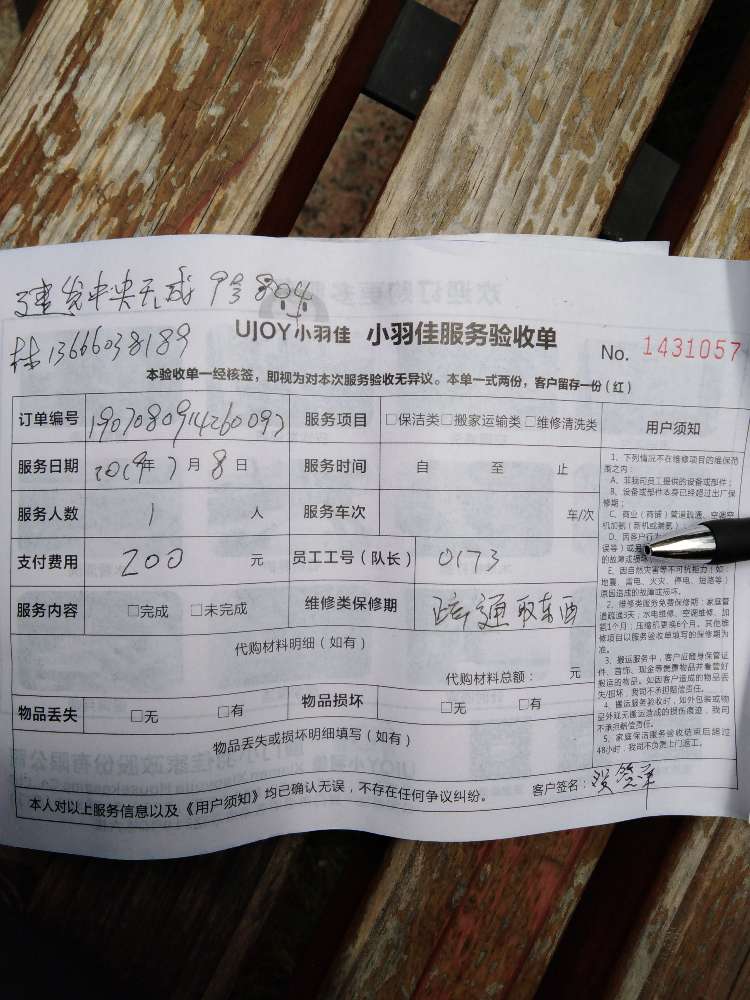 建发中央天成9号804
林13666038189
UJOY小羽佳 小羽佳服务验收单
No. 1431057
本验收单一经核签，即视为对本次服务验收无异议。本单一式两份，客户留存一份（红）
订单编号 服务项目 □保洁类□搬家运输类□维修清洗类 用户须知
服务日期 2019年7月8日 服务时间 自 至 止
服务人数 1 人 服务车次 车/次
支付费用 200 元 员工工号（队长） 0173
服务内容 □完成 □未完成 维修类保修期 疏通取东西
代购材料明细（如有）
代购材料总额： 元
物品丢失 □无 □有 物品损坏 □无 □有
物品丢失或损坏明细填写（如有）
本人对以上服务信息以及《用户须知》均已确认无误，不存在任何争议纠纷。 客户签名：
1、下列情况不在维修项目的维保范
围之内：
A、非我司员工提供的设备或部件；
B、设备或部件本身已经超过出厂保
修期；
C、商业（商铺）管道疏通、空调空
机加氨（新机或漏氨）
D、因客户行为
误等）或
的故障或损坏；
E、因自然灾害等不可抗拒力（如：
地震、雷电、火灾、停电、短路等）
原因造成的故障或损坏。
2、维修类服务免费保修期：家庭管
道疏通3天，水电维修、空调维修、加
氨1个月，压缩机更换6个月。其他维
修项目以服务验收单填写的保修期为
准。
3、搬运服务中，客户应随身保管证
件、首饰、现金等贵重物品并看管好
搬运的物品。如因客户造成的物品丢
失/损坏，我司不承担赔偿责任。
4、搬运服务验收时，如外包装或物
品外观无搬运造成的损伤痕迹，我司
不承担赔偿责任。
5、家庭保洁服务验收结束后超过
48小时，我司不负责上门返工。